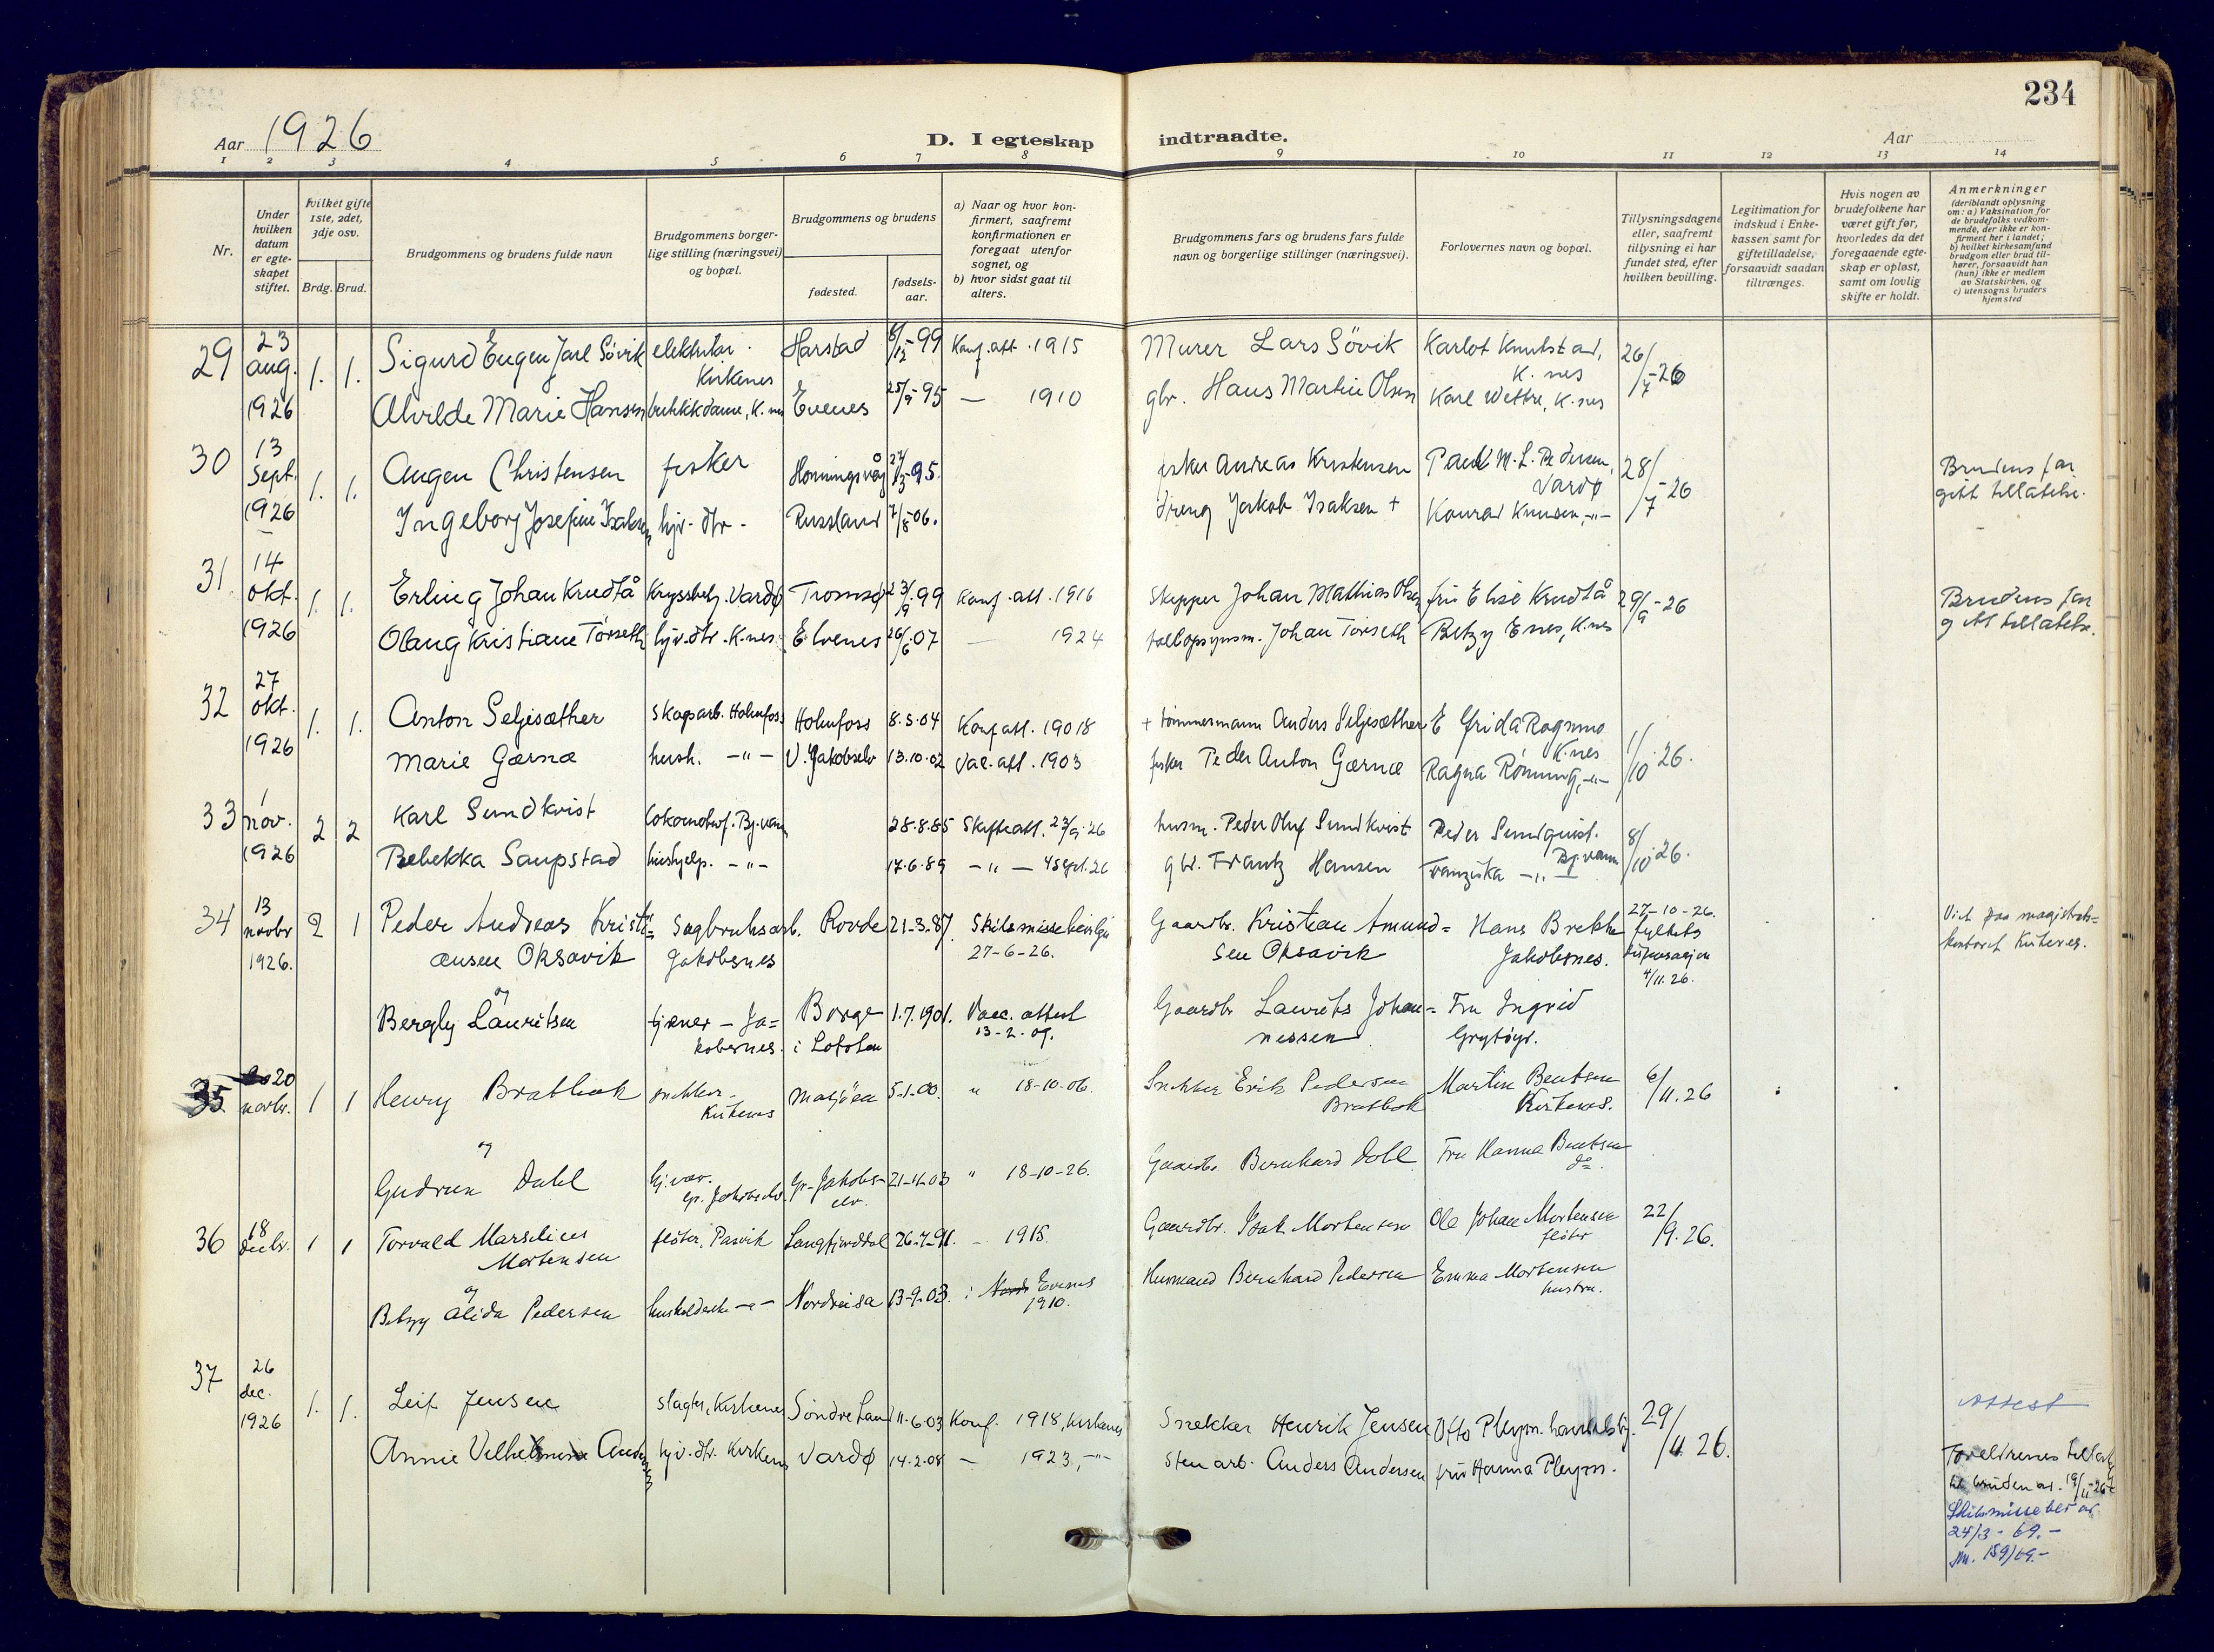 234
Aar 1926
D. I egteskap indtraadte.
Aar
1 2 3 4 5 6 7 8 9 10 11 12 13 14
Nr.
Under hvilken datum er egte-skapet stiftet.
Hvilket gifte 1ste, 2det, 3dje osv.
Brdg. Brud.
Brudgommens og brudens fulde navn
Brudgommens borger-lige stilling (næringsvei) og bopæl.
Brudgommens og brudens
fødested.
fødsels-aar.
a) Naar og hvor kon-firmert, saafremt konfirmationen er foregaat utenfor sognet, og
b) hvor sidst gaat til alters.
Brudgommens fars og brudens fars fulde navn og borgerlige stillinger (næringsvei).
Forlovernes navn og bopæl.
Tillysningsdagene eller, saafremt tillysning ei har fundet sted, efter hvilken bevilling.
Legitimation for indskud i Enke-kassen samt for giftetilladelse, forsaavidt saadan tiltrænges.
Hvis nogen av brudefolkene har været gift før, hvorledes da det foregaaende egte-skap er opløst, samt om lovlig skifte er holdt.
Anmerkninger
(deriblandt oplysning om: a) Vaksination for de brudefolks vedkom-mende, der ikke er kon-firmert her i landet; b) hvilket kirkesamfund brudgom eller brud til-hører, forsaavidt han (hun) ikke er medlem av Statskirken, og c) utensogns bruders hjemsted
29 23 aug. 1926 1. 1. Sigurd Eugen Jarl Søvik elektriker. Kirkenes Harstad 8/12-99 Konf.att. 1915 Murer Lars Søvik Karlot Knutstad, K.nes 26/7-26
Alvilde Marie Hansen butikkdame, K.nes Evenes 25/9-95 — 1910 gbr. Hans Martin Olsen Karl Wettre, K.nes
30 13 Sept. 1926 1. 1. Augen Christensen fisker Honningsvåg 27/3-95. fisker Andreas Kristensen Paul M. L. Pedersen, Vardø 28/7-26 Brudens far gitt tillatelse.
Ingeborg Josefine Isaksen hjv. dtr. Russland 7/8-06. dreng Jakob Isaksen + Konrad Knusen, -"-
31. 14 okt. 1926 1. 1. Erling Johan Knudtå Kryssbetj. Vardø Tromsø 23/9 99 Konf.att. 1916 Skipper Johan Mathias Olsen fru Elise Knudtå 29/9-26 Brudens far gitt tillatelse.
Olaug Kristiane Tørseth hjv.dtr. K.nes. Elvenes 26/6 07 — 1924 tollopsynsm. Johan Tørseth Betzy Enes, K.nes
32 27 okt. 1926 1. 1. Anton Seljesæther Skogsarb. Holmfoss Holmfoss 8.5.04 Konf att. 19018 + tømmermann Anders Seljesæther E Frida Ragnmo K.nes 1/10 26.
Marie Gærnæ hush. -"- V. Jakobselv 13.10.02 Vac.att. 1903 fisker Peder Anton Gærnæ Ragna Rønning, -"-
33 1 nov. 1926 2 2 Karl Sundkvist lokomotivf. Bj.vann 28.8.85 Skifteatt. 23/9 26 husm. Peder Oluf Sundkvist Peder Sundquist. Bj.vann 8/10 26.
Rebekka Saupstad hushjelp. -"- 17.6.89 -"- 4 Sept. 26 gbr. Frantz Hansen Franziska -"-
34 13 novbr 1926. 2 1 Peder Andreas Kristi= ansen Oksavik Sagbruksarb. Jakobsnes Rovde 21-3.87. Skilsmissebevilgn 27-6-26. Gaardbr. Kristian Amund= sen Oksavik Hans Brekke Jakobsnes. 27-10-26. fylkets dispensasjon 4/11.26. Viet paa magistrats= kontoret Kirkenes.
og
Bergly Lauritsen tjener - Ja= kobsnes. Borge i Lofoten 1.7.1901. Vacc. attest 13-2-09. Gaardbr Laurits Johan= nessen Fru Ingrid Grytøyr.
35 20 novbr. 1 1 Henry Bratbak snekker - Kirkenes Mosjøen 5-1-00. " 18-10-06. Snekker Erik Pedersen Bratbak Martin Bentsen Kirkenes. 6/11.26
og
Gudrun Dahl hj.vær. Gr. Jakobselv. Gr.-Jakobs-elv. 21-11-03 " 18-10-26. Gaardbr. Bernhard Dahl Fru Hanna Bentsen do.
36 18 decbr. 1 1 Torvald Marselius Mortensen fløter, Pasvik Langfjorddal 26-7-91. - 1915. Gaardbr. Isak Mortensen Ole Johan Mortensen fløter 22/9.26.
og
Betzy Alida Pedersen husholderske -"- Nordreisa 13-9-03. i Evenes 1910. Husmand Bernhard Pedersen Emma Mortensen hustru.
37 26 dec. 1926 1. 1. Leif Jensen Slagter, Kirkenes Søndre Land 11-6.03 Konf. 1918, Kirkenes Snekker Henrik Jensen Otto Pleym. handelsbtj. 29/11 26. Attest
Annie Vilhelmine Andersen hjv. dtr. Kirkenes Vardø 14.2.08 — 1923, -"- Stenarb. Anders Andersen fru Hanna Pleym. Foreldrenes tillat. til bruden av. 19/11-26
Skilsmisse bev. av. 24/3 - 69.-
Jnr. 159/69.-